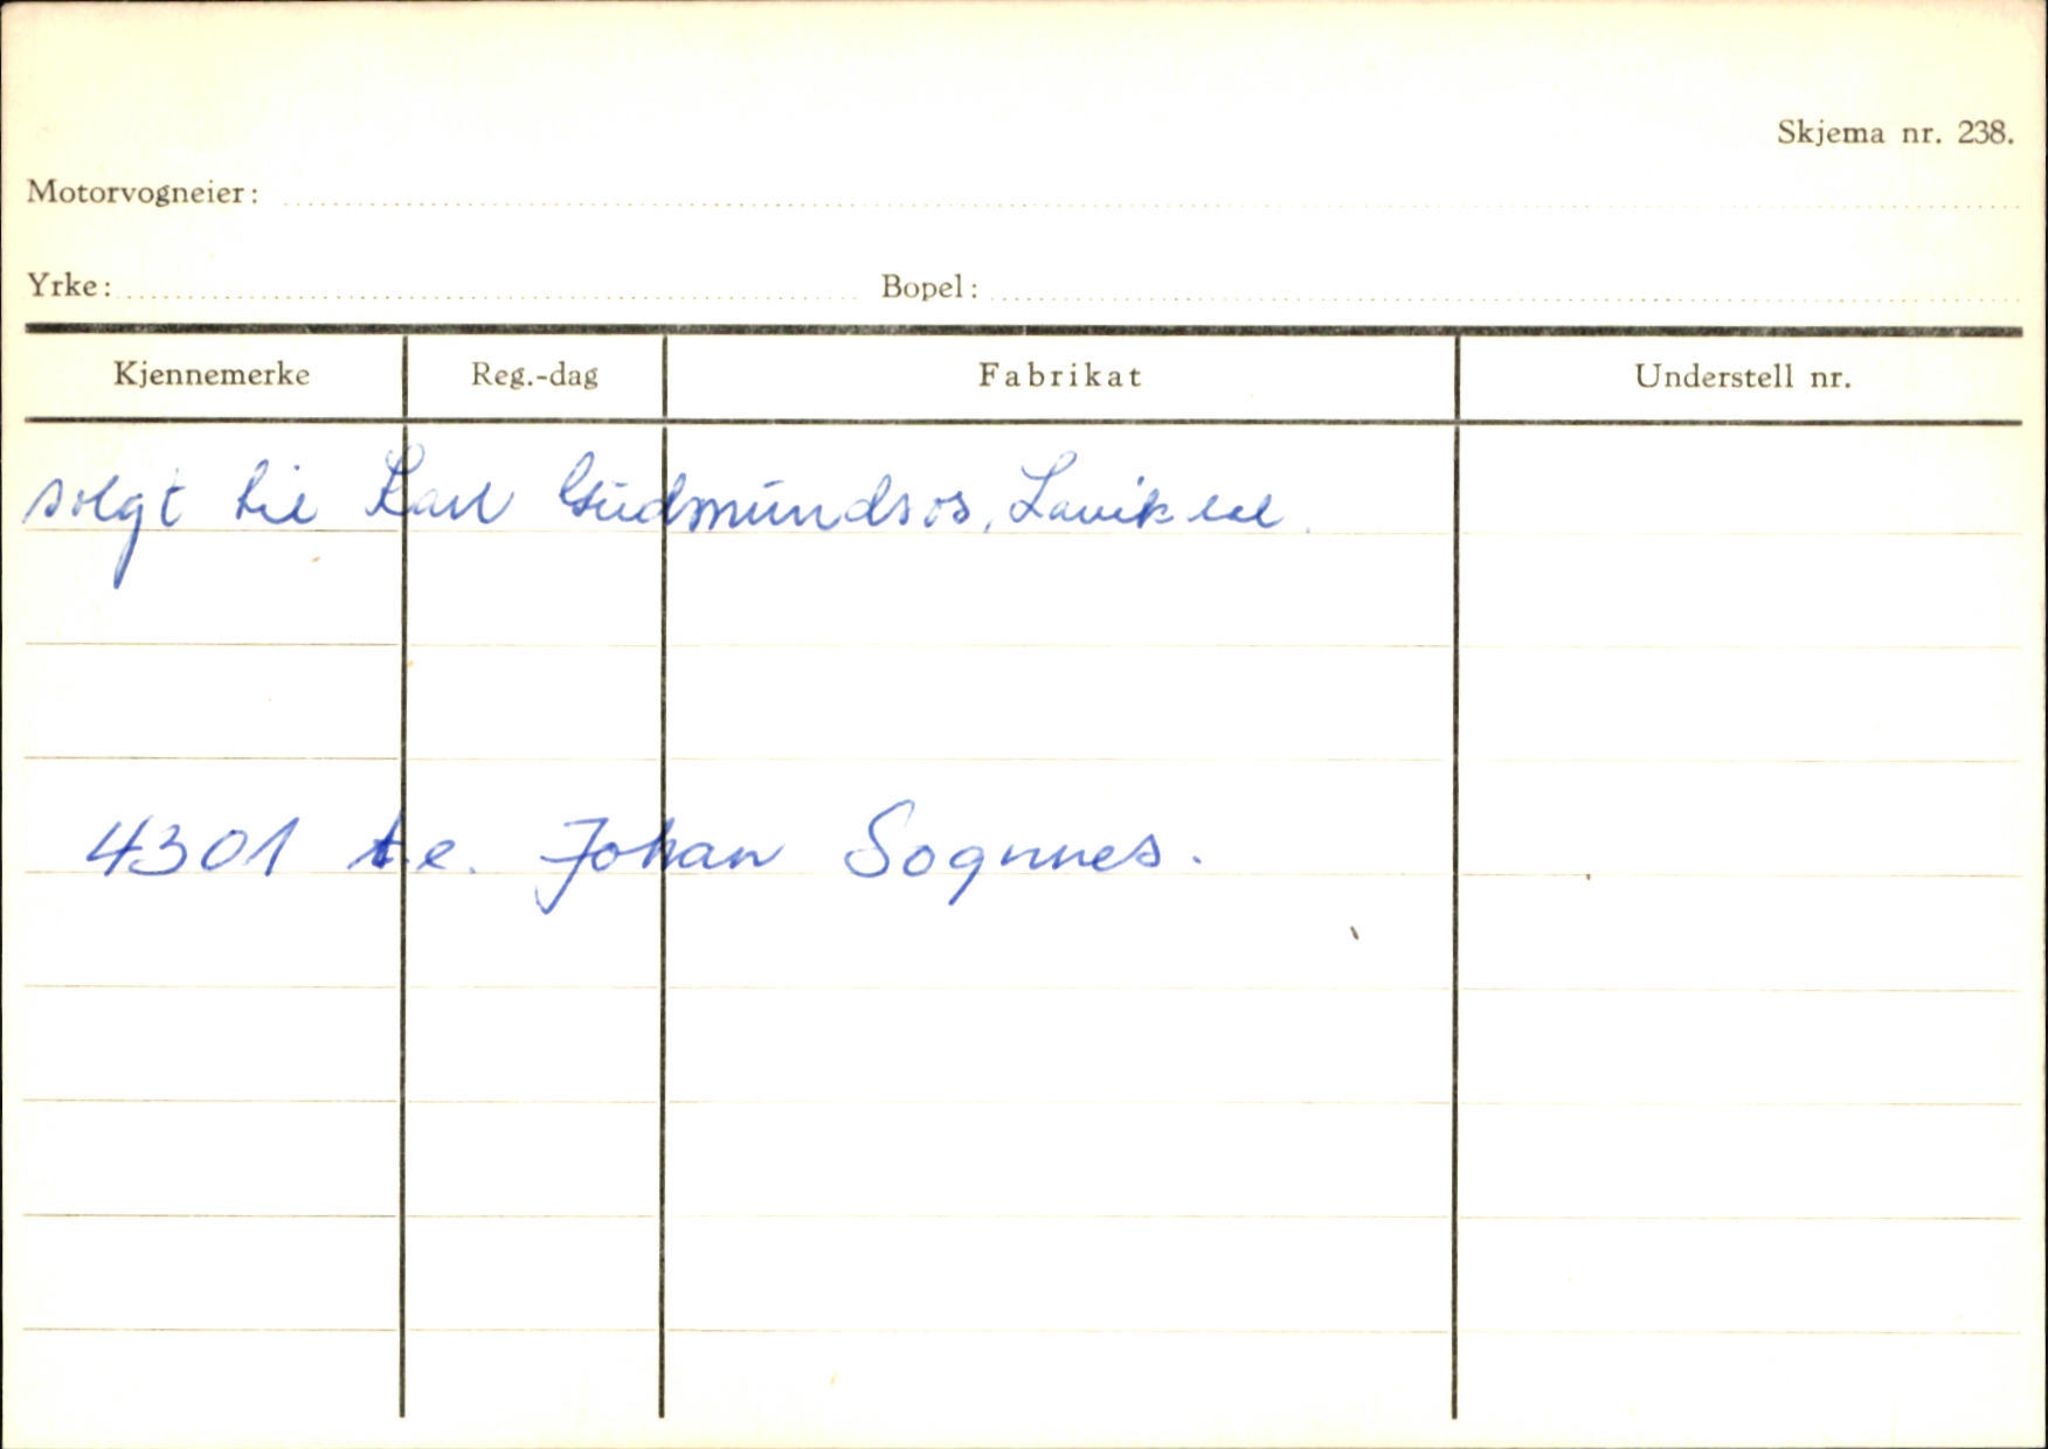 Skjema nr. 238.
Motorvogneier:
Yrke: Bopel:
Kjennemerke Reg.-dag Fabrikat Understell nr.
solgt til Karl Gudmundsos, Lavik
4301 t.e. Johan Sognnes.